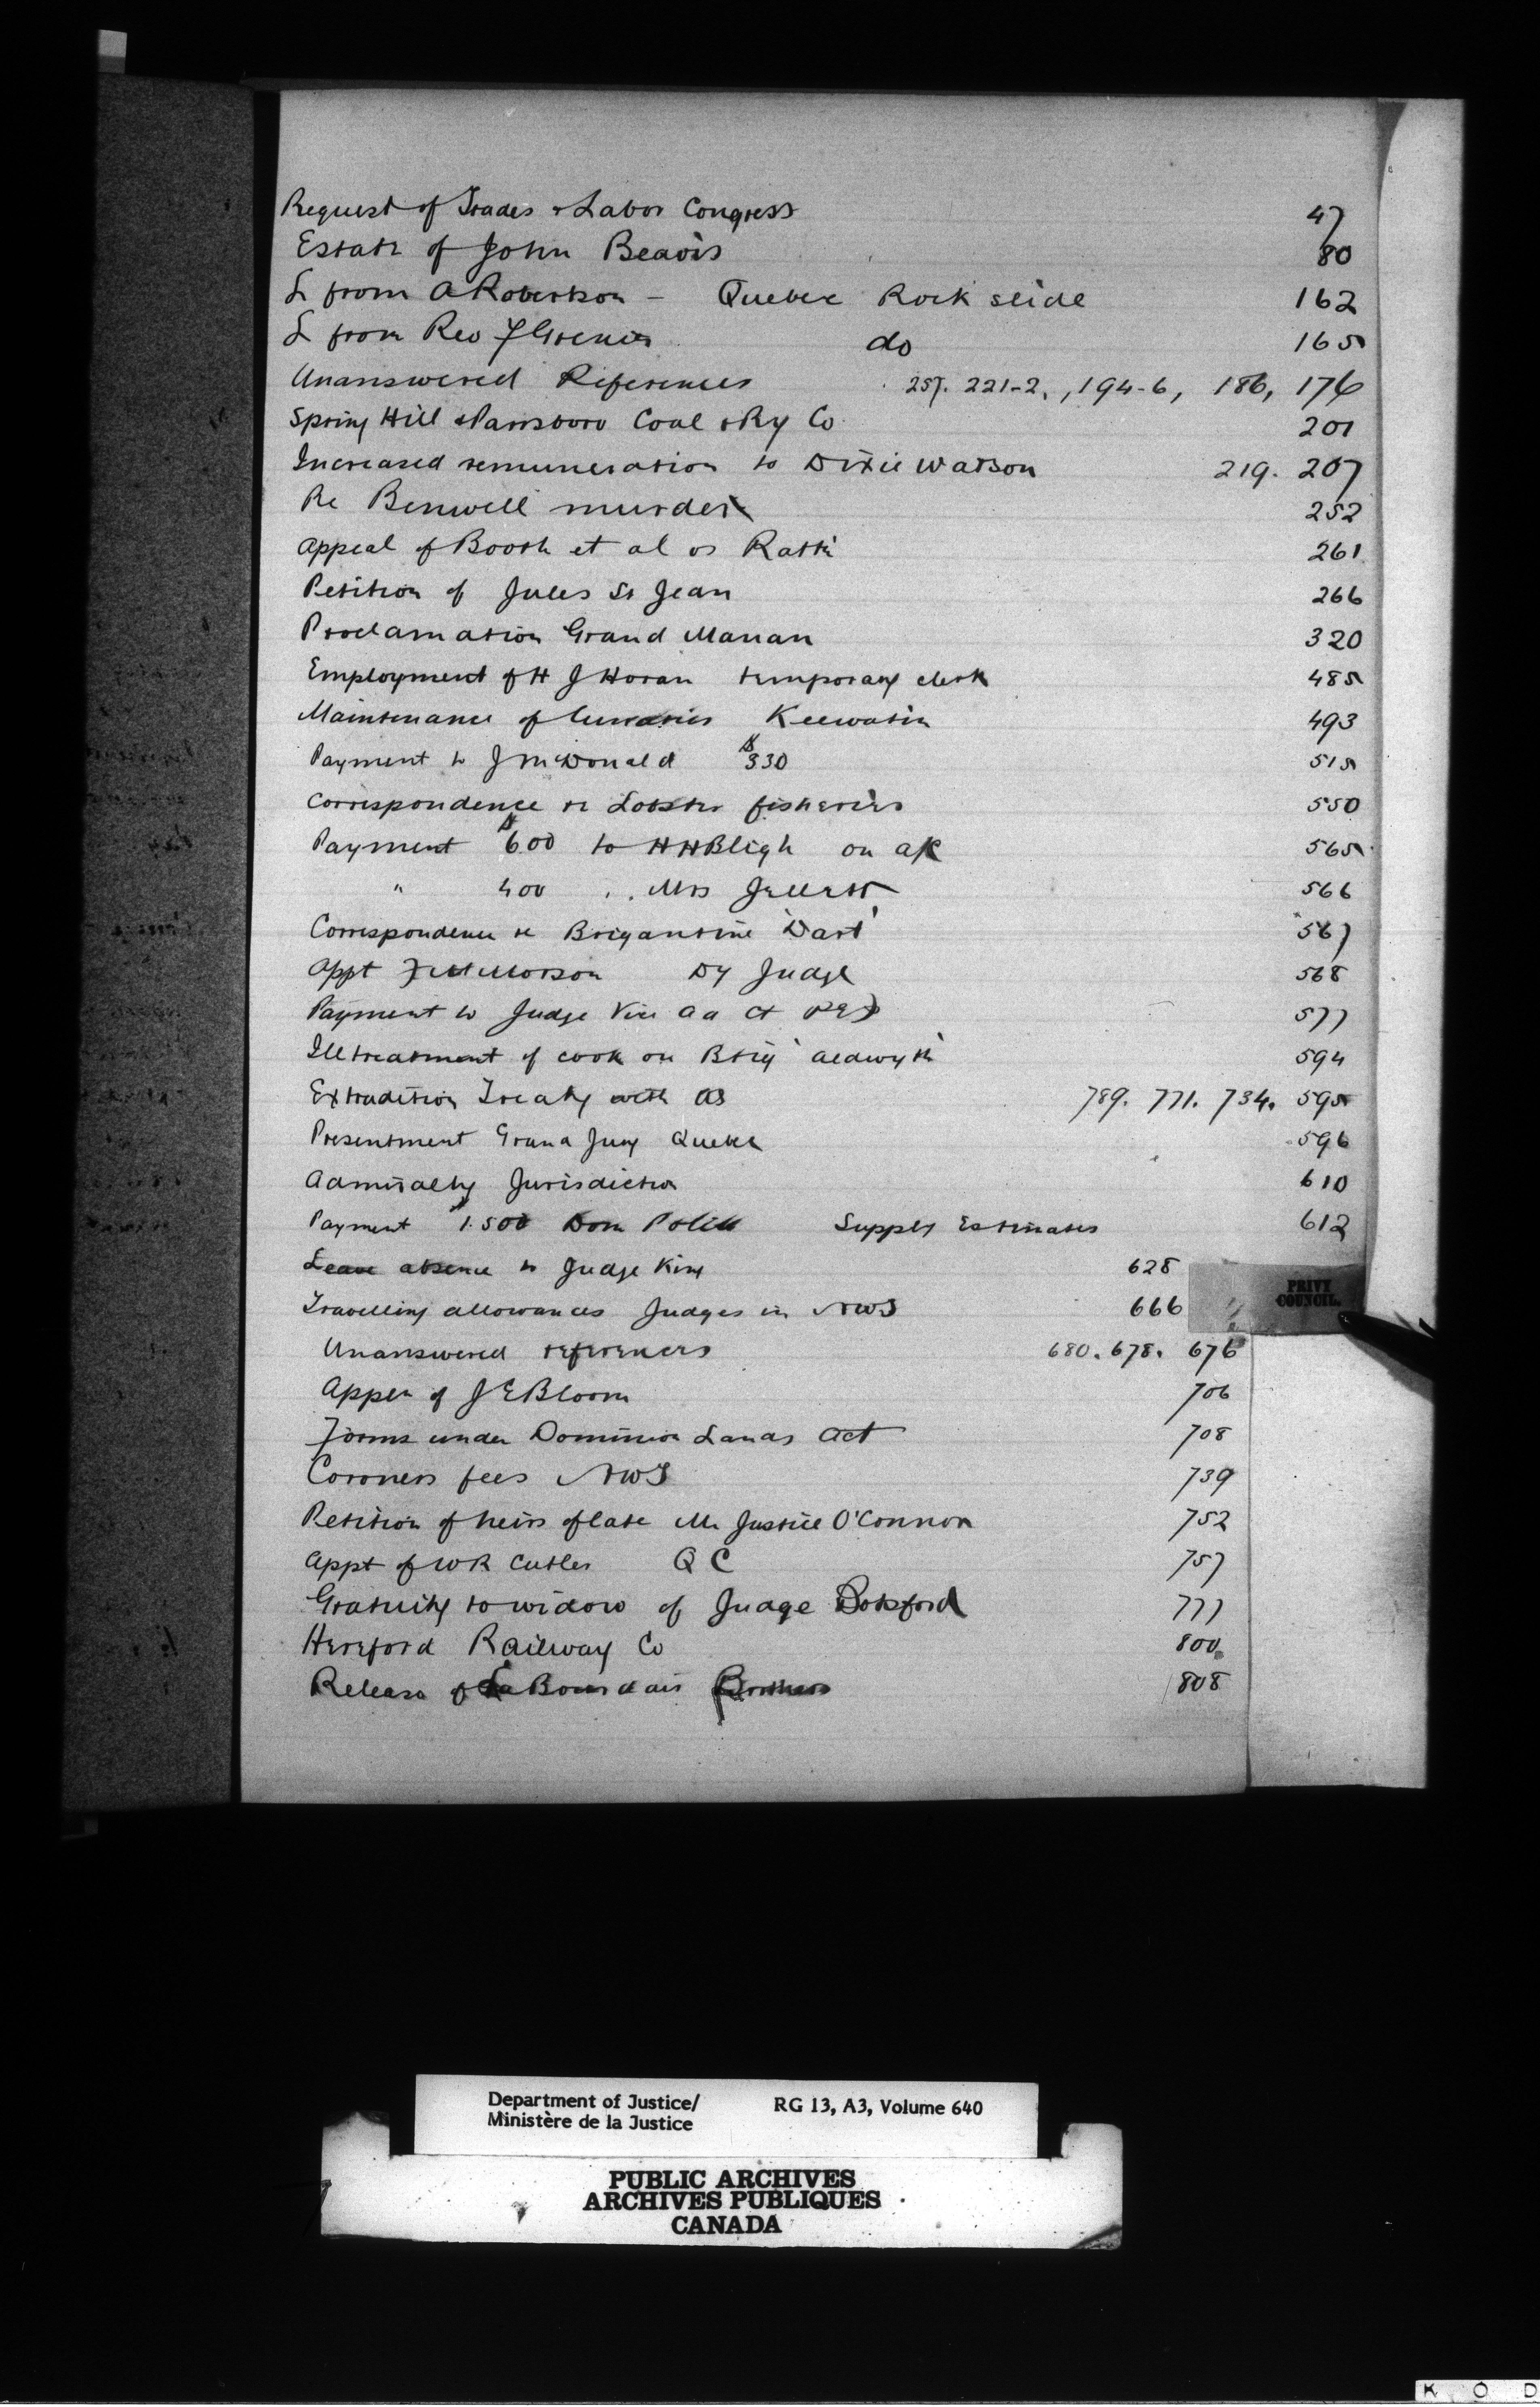 Request of Trades & Labor Congress 47
Estate of John Beavis 80
L from A Robertson - Quebec Rock slide 162
L from Rev F Grenier do 165
Unanswered References 257. 221-2, , 194-6, 186, 176
Spring Hill & Parrsboro Coal & Ry Co 201
Increased remuneration to Dixie Watson 219. 207
Re Benwell murder 252
Appeal of Booth et al vs Ratté 261
Petition of Jules St Jean 266
Proclamation Grand Manan 320
Employment of H J Horan temporary clerk 485
Maintenance of lunatics Keewatin 493
Payment to J McDonald $330 515
Correspondence re Lobster fisheries 550
Payment $600 to H H Bligh on a/c 565
" 400 .. Mrs Jellett 566
Correspondence re Brigantine 'Dart' 567
Appt Morson Dy Judge 568
Payment to Judge Vice Ad Ct PEI 577
Illtreatment of cook on Brig 'Aldwyth' 594
Extradition Treaty with US 789. 771. 734. 595
Presentment Grand Jury Quebec 596
Admiralty Jurisdiction 610
Payment $1.500 Dom Police Supply Estimates 612
Leave absence to Judge King 628
Travelling allowances Judges in NWT 666
PRIVY
COUNCIL.
Unanswered references 680. 678. 676
Appln of J E Bloom 706
Forms under Dominion Lands Act 708
Coroners fees NWT 739
Petition of heirs of late Mr Justice O'Connor 752
Appt of W R Cutler Q C 757
Gratuity to widow of Judge Botsford 777
Hereford Railway Co 800
Release of La Bourdais Brothers 808
Department of Justice/ RG 13, A3, Volume 640
Ministère de la Justice
PUBLIC ARCHIVES
ARCHIVES PUBLIQUES
CANADA
K O D